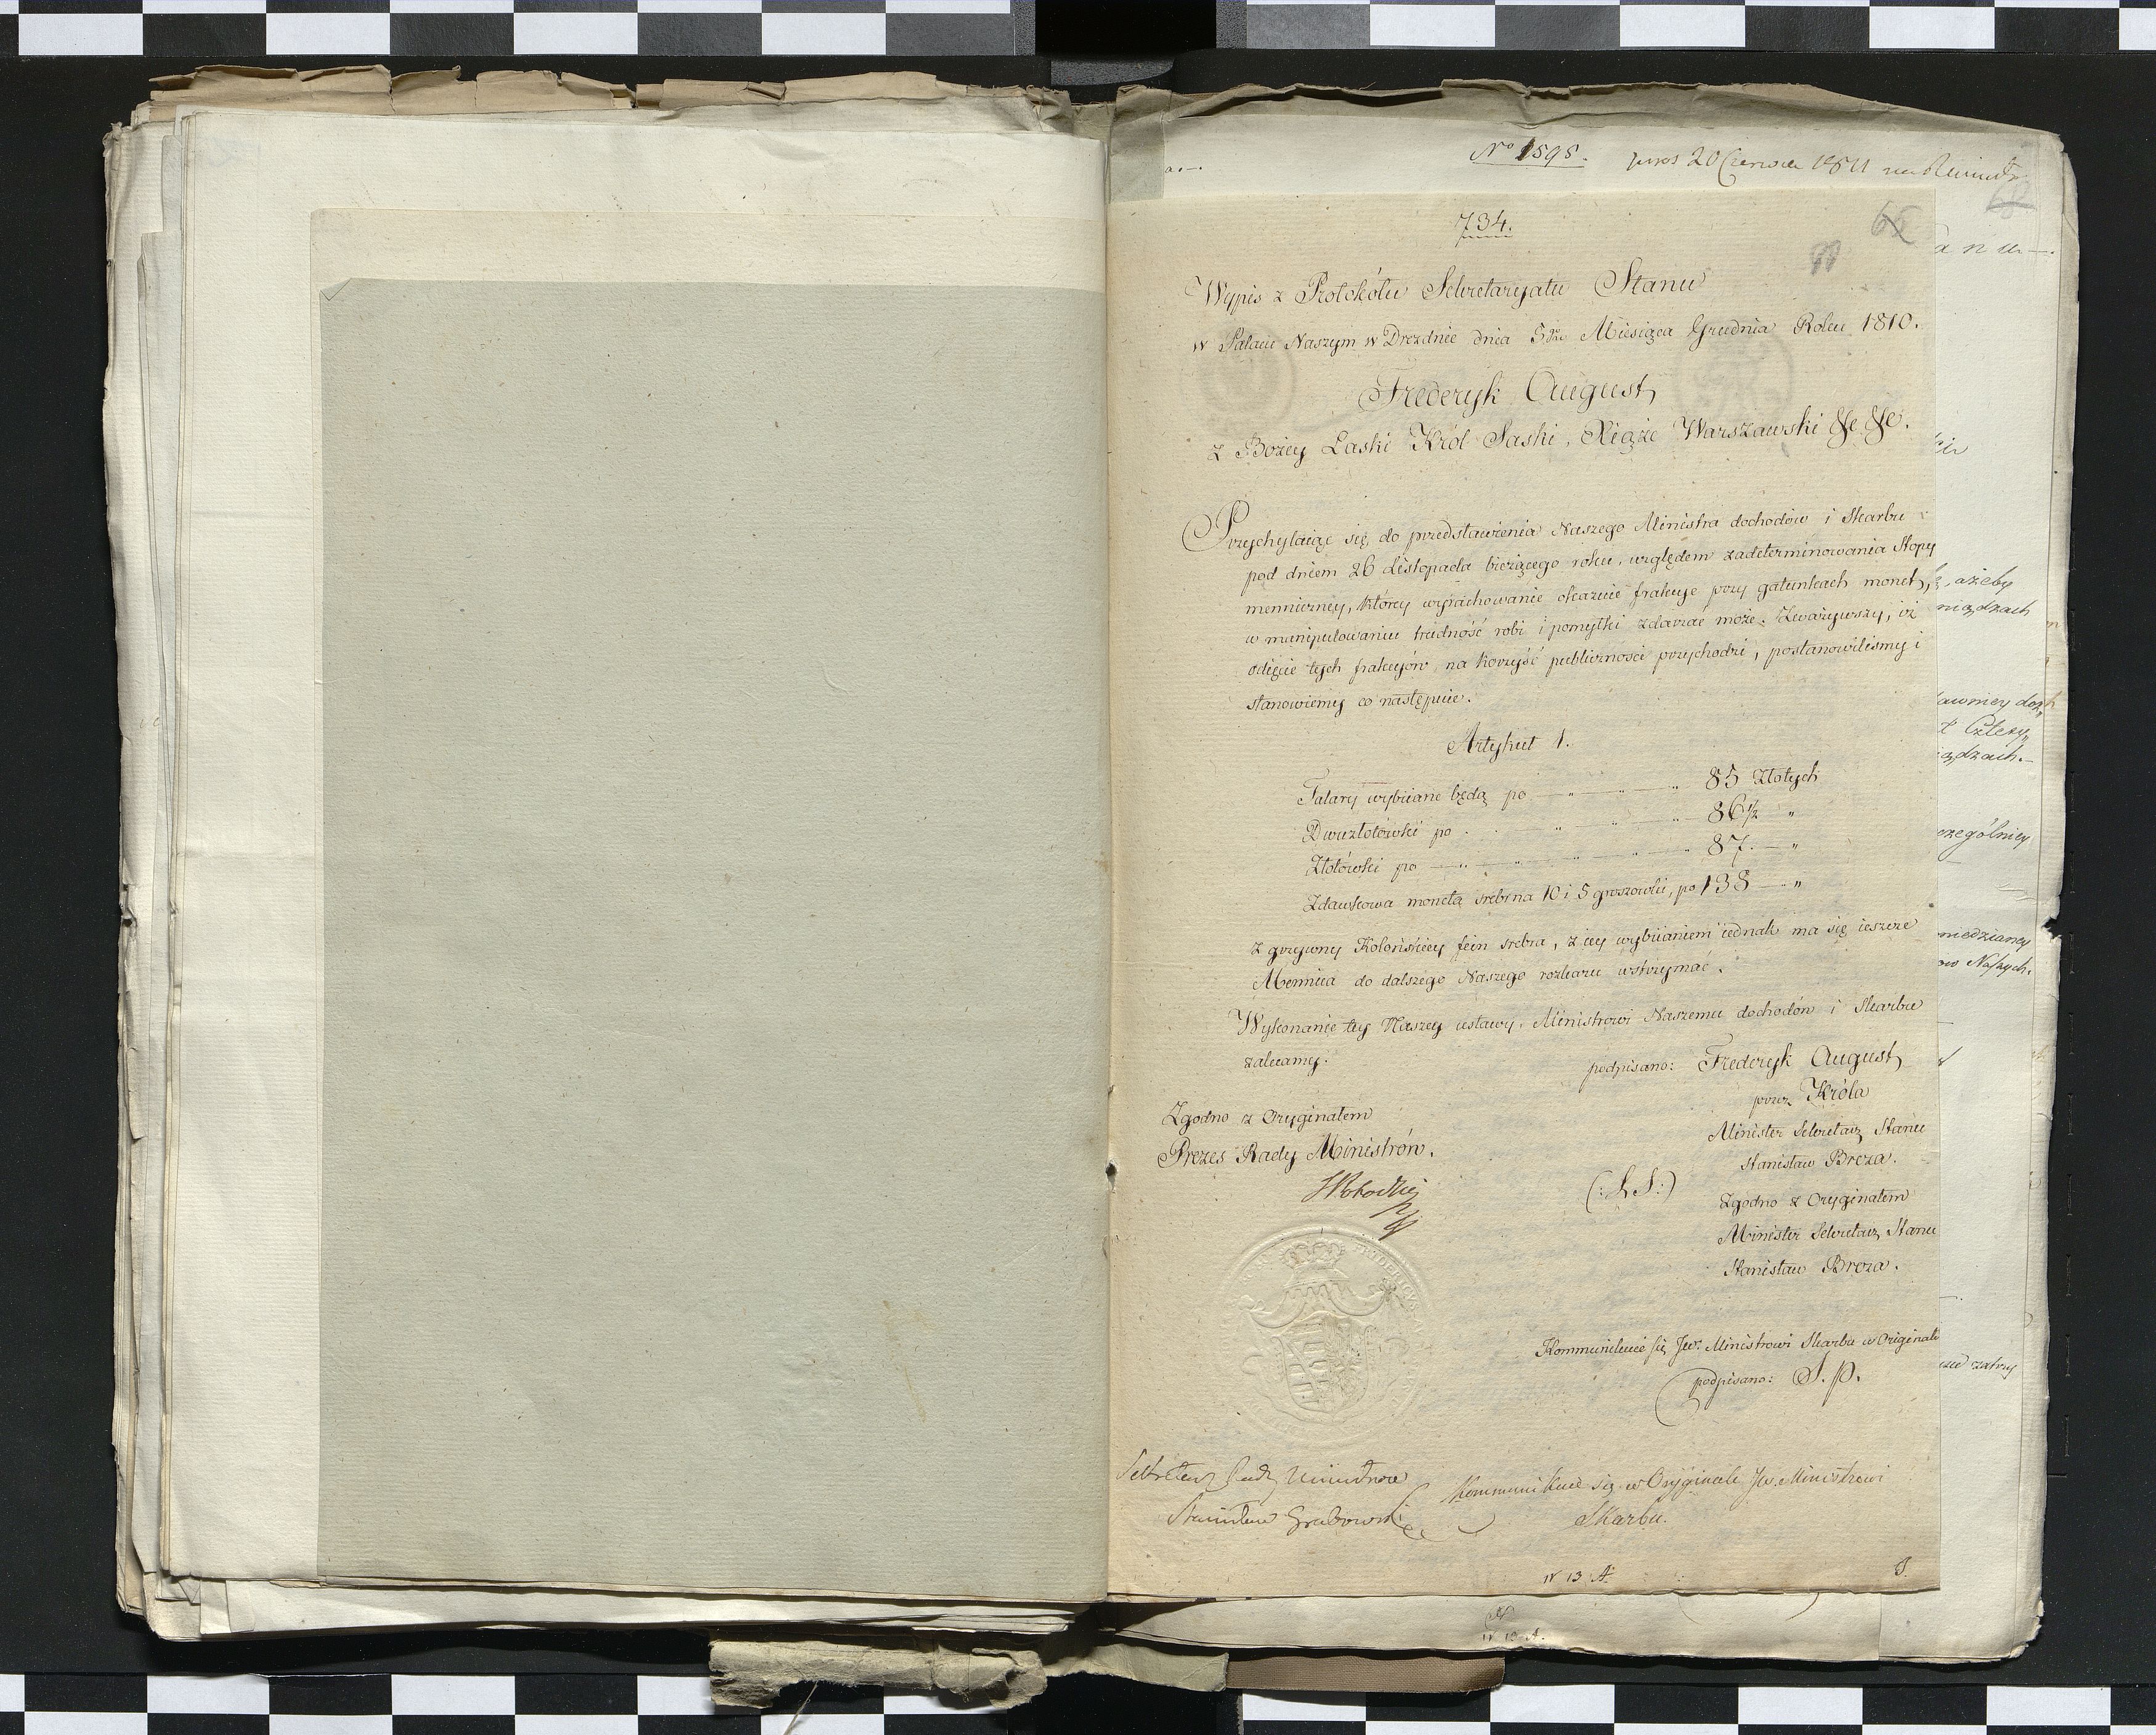 No 1595.
20 Czerwca 1811
734.
65
Wypis z Protokółu Sekretaryatu Stanu
w Pałacu Naszym w Drezdnie dnia 5go Miesiąca Grudnia Roku 1810.
Fryderyk August
z Bożey Łaski Król Saski, Xiąże Warszawski &c &c.
Przychylaiąc się do przedstawienia Naszego Ministra dochodów i Skarbu
pod dniem 26 Listopada bieżącego roku, względem zadeterminowania Stopy
menniczney, którey wyrachowanie okazuie frakcye przy gatunkach monet,
w manipulowaniu trudność robi i pomyłki zdarzać może. Zważywszy, iż
odięcie tych frakcyów, na korzyść publiczności przychodzi, postanowiliśmy i
stanowiemy co następuie.
Artykuł 1.
Talary wybiiane będą po — " — " — " 85 Złotych
Dwuzłotówki po — " — " — " 86 1/2 "
Złotówki po — " — " — " — " — " 87. — "
Zdawkowa moneta srebrna 10 i 5 groszowki, po 138 — "
z grzywny Kolońskiey fein srebra, z iey wybiianiem iednak ma się ieszcze
Mennica do dalszego Naszego rozkazu wstrzymać.
Wykonanie tey Naszey ustawy, Ministrowi Naszemu dochodów i Skarbu
zalecamy.
podpisano: Fryderyk August
przez Króla
Minister Sekretarz Stanu
Stanisław Breza.
(:L.S:)
Zgodno z Oryginałem
Minister Sekretarz Stanu
Stanisław Breza.
Zgodno z Oryginałem
Prezes Rady Ministrów.
Kommunikuie się Jw. Ministrowi Skarbu w Originale
podpisano: S. p.
Sekretarz Rady Ministrow
Stanisław Grabowski
Kommunikuie się w Oryginale Jw. Ministrowi
Skarbu.
IV 13 A.
a n u —.
ażeby
niądzach
iądzach.—
czególniey
miedzianey
ow Naszych.
IV 13 A.